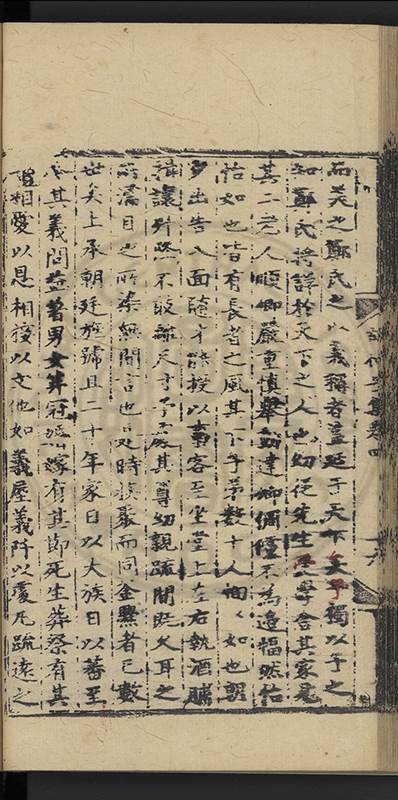 而美之鄭氏之以義稱者並延于天下矣予獨以予之
知鄭氏將詳於天下之人也幼從先生學舍其家見
其二老人順卿嚴重慎舉動達卿倜儻不為邊幅然怡
怡如也皆有長者之風其下子弟數十人恂恂如也朝
夕出告入面隨才能授以事客至坐堂上左右執酒脯
揖讓升降不敢離尺寸予處其尊幼親疏間既久耳之
所濡目之所染無間言也是時族聚而同金爨者已數
世矣上承朝廷旌號且二十年家日以大族日以蕃至
其義問益著男女筓冠婚嫁有其節死生葬祭有其
相愛以恩相接以文他如義屋義阡以覆凡疏遠之